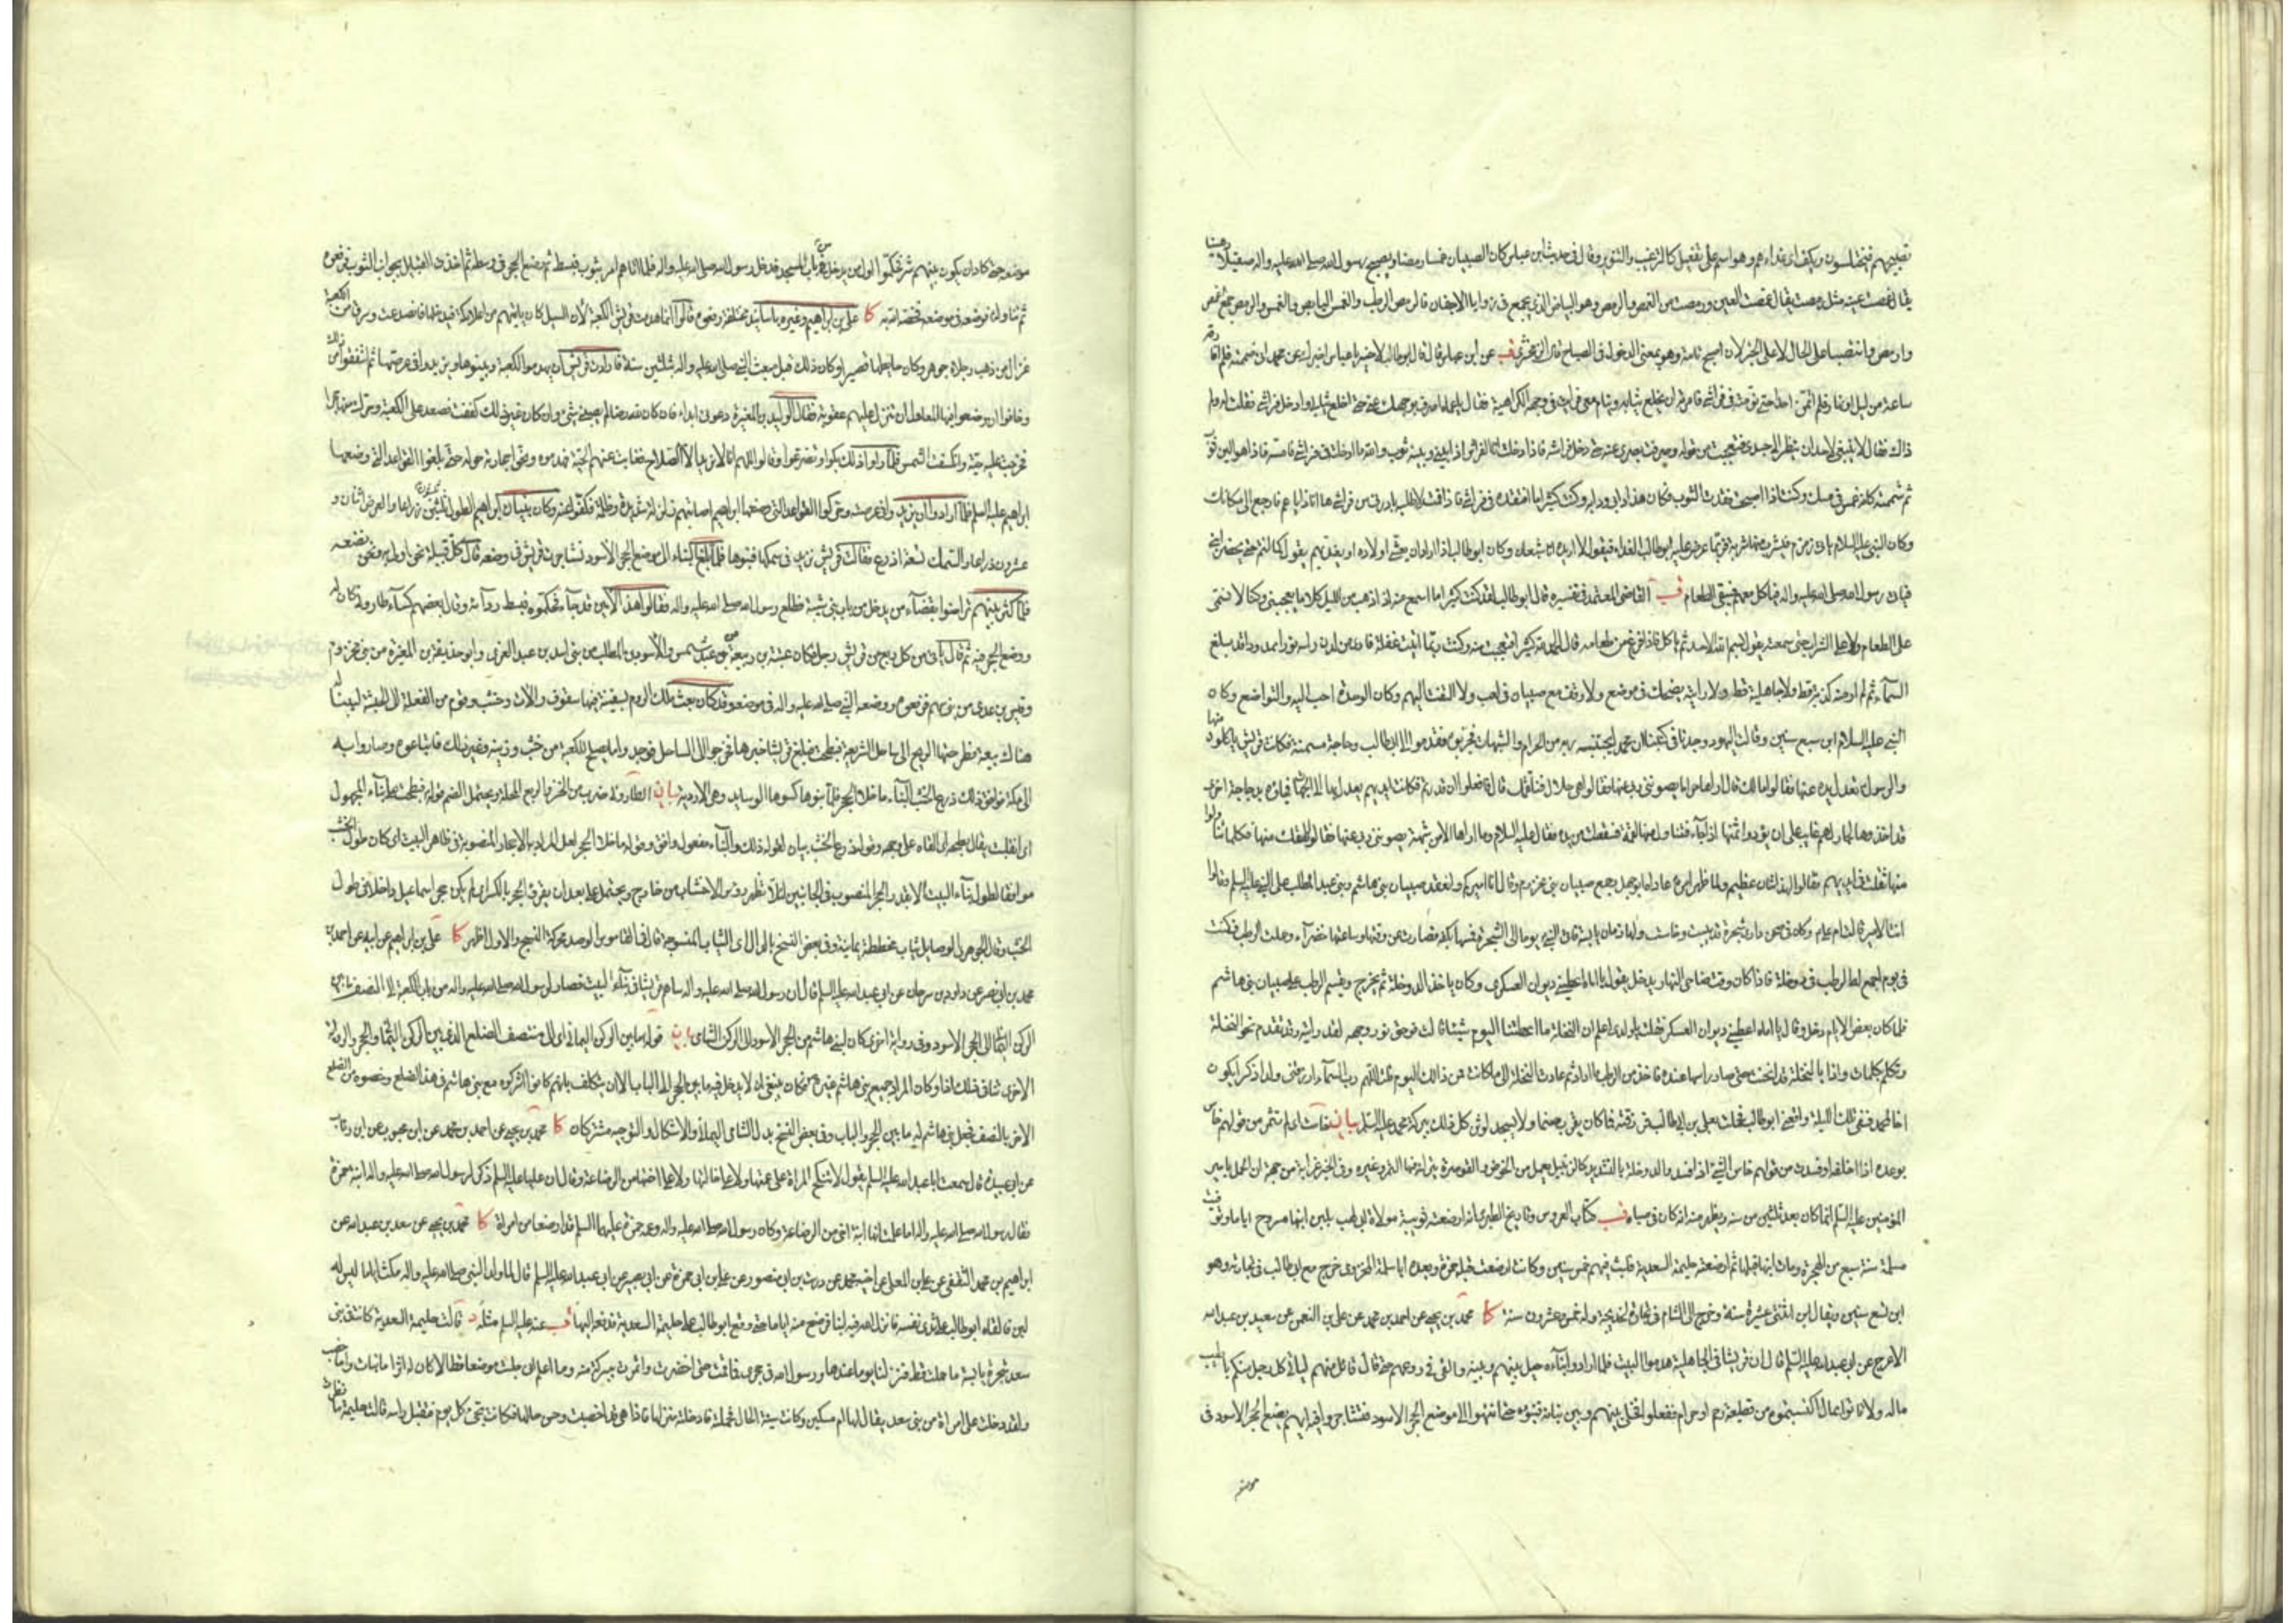 تقصيرهم فيختلسون ويكف اى غداءهم وهو اسم على تفعيل كالترغيب والتنوير وقال فى حديث ابن عباس كان الصبيان غمصا رمصا ويصبح رسول الله صلى الله عليه واله صقيلا دهينا
يقال غمصت عينه مثل رمصت يقال غمصت العين ورمصت من الغمص والرمص وهو البياض الذى يجتمع فى زوايا الاجفان فالرمص الرطب والغمص اليابس والغمص والرمص جمع اغمص
وارمص وانتصبا على الحال لا على الخبر لان اصبح تامة وهو بمعنى الدخول فى الصباح قاله الزمخشرى قب عن ابن عباس قال قال ابوطالب لاخيه يا عباس اخبرك عن محمد انى ضممته فلم افارقه
ساعة من ليل او نهار فلم ائتمن احدا حتى نومته فى فراشى فامرته ان يخلع ثيابه وينام معى فرايت فى وجهه الكراهية فقال يا عماه اصرف بوجهك عنى حتى اخلع ثيابى وادخل فراشى فقلت له ولم
ذاك فقال لا ينبغى لاحد ان ينظر الى جسدى فتعجبت من قوله وصرفت بصرى عنه حتى دخل فراشه فاذا دخلت انا الفراش اذا بينى وبينه ثوب والله ما ادخلته فى فراشى فامسه فاذا هو الين ثوب
ثم شممته كانه غمس فى مسك وكنت اذا اصبحت فقدت الثوب فكان هذا دابى ودابه وكنت كثيرا ما افتقده فى فراشى فاذا قمت لاطلبه بادرنى من فراشه ها انا ذا يا عم فارجع الى مكانك
وكان النبى عليه السلام ياتى زمزم فيشرب منها شربة فربما عرض عليه ابوطالب الغداء فيقول لا اريده انا شبعان وكان ابوطالب اذا اراد ان يعشى اولاده او يغديهم يقول كما انتم حتى يحضر ابنى
فياتى رسول الله صلى الله عليه واله فياكل معهم فيبقى الطعام قب القاضى المعتمد فى تفسيره قال ابوطالب لقد كنت كثيرا ما اسمع منه اذا ذهب من الليل كلاما يعجبنى وكنا لا نسمى
على الطعام ولا على الشراب حتى سمعته يقول بسم الله الاحد ثم ياكل فاذا فرغ من طعامه قال الحمد لله كثيرا فتعجبت منه وكنت ربما اتيت غفلة فارى من لدن راسه نورا ممدودا قد بلغ
السماء ثم لم ار منه كذبة قط ولا جاهلية قط ولا رايته يضحك فى موضع ولا وقف مع صبيان فى لعب ولا التفت اليهم وكان الوحدة احب اليه والتواضع وكان
النبى عليه السلام ابن سبع سنين وقالت اليهود وجدنا فى كتبنا ان محمدا يجنبه ربه من الحرام والشبهات فجربوه فقدموا الى ابى طالب دجاجة مسمنة فكانت قريش ياكلون منها
والرسول تعدل يده عنها فقالوا ما لك قال اراها حراما يصوننى ربى عنها فقالوا هى حلال فنلقمك قال فافعلوا ان قدرتم فكانت ايديهم يعدل بها الى الجهات فجاؤه بدجاجة اخرى
قد اخذوها لجار لهم غايب على ان يؤدوا ثمنها اذا جاء فتناول منها لقمة فسقطت من يده فقال عليه السلام وما اراها الا من شبهة يصوننى ربى عنها فقالوا نلقمك منها فكلما تناولوا
منها ثقلت فى ايديهم فقالوا لهذا شان عظيم ولما ظهر امره عاداه ابوجهل جمع صبيان بنى مخزوم وقال انا اميركم وانعقد صبيان بنى هاشم وبنى عبد المطلب على النبى عليه السلم وقالوا
انت الامير قالت ام على وكان فى صحن دارى شجرة قد يبست وخاست ولها زمان يابسة فاتى النبى يوما الى الشجرة فمسها بكفه فصارت من وقتها وساعتها خضراء وحملت الرطب فكنت
فى يوم اجمع له الرطب فى دوخلة فاذا كان وقت ضاحى النهار يدخل يقول يا اماه اعطينى ديوان العسكر وكان ياخذ الدوخلة ثم يخرج ويقسم الرطب على صبيان بنى هاشم
فلما كان بعض الايام دخل وقال يا اماه اعطينى ديوان العسكر فقلت يا ولدى اعلم ان النخلة ما اعطتنا اليوم شيئا قالت فوحق نور وجهه لقد رايته وقد تقدم نحو النخلة
وتكلم بكلمات واذا بالنخلة قد انحنت حتى صار راسها عنده فاخذ من الرطب ما اراد ثم عادت النخلة الى ما كانت فمن ذلك اليوم قلت اللهم رب السماء ارزقنى ولدا ذكرا يكون
اخا لمحمد ففى تلك الليلة واقعنى ابوطالب فحملت بعلى بن ابى طالب فرزقته فما كان يقرب صنما ولا يسجد لوثن كل ذلك ببركة محمد عليه السلم بيان خاست اى لم تثمر من قولهم خاس
بوعده اذا اخلفه او فسدت من قولهم خاس الشئ اذا فسد والدوخلة بالتشديد كالزنبيل يعمل من الخوص والقوصرة يترك فيها التمر وغيره وفى الخبر غرابة من جهة ان الحمل بامير
المؤمنين عليه السلم انما كان بعد ثلثين من سنه ويظهر منه انه كان فى صباه قب كتاب العروس وتاريخ الطبرى انه ارضعته ثويبة مولاة ابى لهب بلبن ابنها مسروح اياما وتوفيت
مسلمة سنة سبع من الهجرة ومات ابنها قبلها ثم ارضعته حليمة السعدية فلبث فيهم خمس سنين وكانت ارضعت قبله حمزة وبعده ابا سلمة المخزومى خرج مع ابى طالب فى تجارته وهو
ابن تسع سنين ويقال ابن اثنتى عشرة سنة وخرج الى الشام فى تجارة لخديجة وله خمس وعشرون سنة كا محمد بن يحيى عن احمد بن محمد عن على بن النعمن عن سعيد بن عبد الله
الاعرج عن ابى عبد الله عليه السلم قال ان قريشا فى الجاهلية هدموا البيت فلما ارادوا بناءه حيل بينهم وبينه والقى فى روعهم حتى قال قائل منهم لياتى كل رجل منكم باطيب
ماله ولا تاتوا بمال اكتسبتموه من قطيعة رحم او حرام ففعلوا فخلى بينهم وبين بنائه فبنوه حتى انتهوا الى موضع الحجر الاسود فتشاجروا فيه ايهم يضع الحجر الاسود فى
موضعه
موضعه حتى كاد ان يكون بينهم شر فحكموا اول من يدخل من باب المسجد فدخل رسول الله صلى الله عليه واله فلما اتاهم امر بثوب فبسط ثم وضع الحجر فى وسطه ثم اخذت القبايل بجوانب الثوب فرفعوه
ثم تناوله فوضعه فى موضعه فخصه الله به كا على بن ابراهيم وغيره باسانيد مختلفة رفعوه قالوا انما هدمت قريش الكعبة لان السيل كان ياتيهم من اعلا مكة فيدخلها فانصدعت وسرق من الكعبة
غزال من ذهب رجلاه جوهر وكان حايطها قصيرا وكان ذلك قبل مبعث النبى صلى الله عليه واله بثلثين سنة فارادت قريش ان يهدموا الكعبة ويبنوها ويزيدوا فى عرصتها ثم اشفقوا من ذلك
وخافوا ان وضعوا فيها المعاول ان تنزل عليهم عقوبة فقال الوليد بن المغيرة دعونى ابدا فان كان لله رضا لم يصبنى شئ وان كان غير ذلك كففت فصعد على الكعبة وحرك منها حجرا
فخرجت عليه حية وانكسفت الشمس فلما راوا ذلك بكوا وتضرعوا وقالوا اللهم انا لا نريد الا الصلاح فغابت عنهم الحية فهدموه ونحوا حجارته حوله حتى بلغوا القواعد التى وضعها
ابراهيم عليه السلم فلما ارادوا ان يزيدوا فى عرصته وحركوا القواعد التى وضعها ابراهيم اصابتهم زلزلة شديدة وظلمة فكفوا عنه وكان بنيان ابراهيم الطول ثلثون ذراعا والعرض اثنان و
عشرون ذراعا والسمك تسعة اذرع فقالت قريش نزيد فى سمكها فبنوها فلما بلغ البناء الى موضع الحجر الاسود تشاجرت قريش فى وضعه قال كل قبيلة نحن اولى به ونحن نضعه
فلما كثر بينهم تراضوا بقضاء من يدخل من باب بنى شيبة فطلع رسول الله صلى الله عليه واله فقالوا هذا الامين قد جاء فحكموه فبسط رداءه وقال بعضهم كساء طارونى كان له
ووضع الحجر فيه ثم قال ياتى من كل ربع من قريش رجل فكان عتبة بن ربيعة بن عبد شمس والاسود بن المطلب من بنى اسد بن عبد العزى وابو حذيفة بن المغيرة من بنى مخزوم
وقيس بن عدى من بنى سهم فرفعوه ووضعه النبى صلى الله عليه واله فى موضعه وقد كان بعث ملك الروم بسفينة فيها سقوف والات وخشب وقوم من الفعلة الى الحبشة ليبنى له
هناك بيعة فطرحتها الريح الى ساحل الشريعة فبطحت فبلغ قريشا خبرها فخرجوا الى الساحل فوجدوا ما يصلح للكعبة من خشب وزينة وغير ذلك فابتاعوه وصاروا به
الى مكة فوافق ذلك ذرع الخشب البناء ما خلا الحجر فلما بنوها كسوها الوسايد وهى الاردية بيان الطارونى ضرب من الخز والربع المحلة ويحتمل الضم قوله فبطحت على بناء المجهول
اى انقلبت يقال بطحه اى القاه على وجهه وقوله ذرع الخشب بيان لقوله ذلك والبناء مفعول وافق وقوله ما خلا الحجر لعل المراد به الاحجار المنصوبة فى ظاهر البيت اى كان طول الخشب
موافقا لطول بناء البيت الا بقدر الحجر المنصوب فى الجانبين لئلا تظهر رؤس الاخشاب من خارج ويحتمل على بعد ان يقرأ الحجر بالكسر اى لم يكن حجر اسماعيل داخلا فى طول
الخشب وقال الجوهرى الوصايل ثياب مخططة يمانية وفى بعض النسخ بالدال اى الثياب المنسوجة قال فى القاموس الوصد محركة النسج والاول اظهر كا على بن ابراهيم عن ابيه عن احمد بن
محمد بن ابى نصر عن داود بن سرحان عن ابى عبد الله عليه السلم قال ان رسول الله صلى الله عليه واله ساهم قريشا فى بناء البيت فصار لرسول الله صلى الله عليه واله من باب الكعبة الى النصف ما بين
الركن اليمانى الى الحجر الاسود وفى رواية اخرى كان لبنى هاشم من الحجر الاسود الى الركن الشامى بيان قوله ما بين الركن اليمانى اى الى منتصف الضلع الذى بين الركن اليمانى والحجر والرواية
الاخرى تنافى ذلك الا ان كان المراد جميع بنى هاشم فيكون ينبغى ان لا يدخل فيه ما بين الحجر الى الباب الا ان يتكلف بانهم كانوا اشركوه مع بنى هاشم فى هذا الضلع وخصوه من الضلع
الاخر بالنصف فجعل بنى هاشم له ما بين الحجر والباب وفى بعض النسخ بدل الشامى اليمانى والاشكال والتوجيه مشتركان كا محمد بن يحيى عن احمد بن محمد عن ابن محبوب عن ابن رئاب
عن ابى عبيدة قال سمعت ابا عبد الله عليه السلم يقول لا تنكح المراة على عمتها ولا على خالتها ولا على اختها من الرضاعة وقال ان عليا عليه السلم ذكر لرسول الله صلى الله عليه واله ابنة حمزة
فقال رسول الله صلى الله عليه واله اما علمت انها ابنة اخى من الرضاعة وكان رسول الله صلى الله عليه واله وعمه حمزة عليهما السلم قد ارضعا من امراة كا محمد بن يحيى عن سعد بن عبد الله عن
ابراهيم بن محمد الثقفى عن على بن المعلى عن اخيه محمد عن درست بن ابى منصور عن على بن ابى حمزة عن ابى بصير عن ابى عبد الله عليه السلم قال لما ولد النبى صلى الله عليه واله مكث اياما ليس له
لبن فالقاه ابوطالب على ثدى نفسه فانزل الله فيه لبنا فرضع منه اياما حتى وقع ابوطالب على حليمة السعدية فدفعه اليها قب عنه عليه السلم مثله د قالت حليمة السعدية كانت فى بنى
سعد شجرة يابسة ما حملت قط فنزلنا يوما عندها ورسول الله فى حجرى فما قمت حتى اخضرت واثمرت ببركة منه وما اعلم انى جلست موضعا قط الا كان له اثر اما نبات واما خصب
ولقد دخلت على امراة من بنى سعد يقال لها ام مسكين وكانت سيئة الحال فحملته فادخلته منزلها فاذا هى قد اخصبت وحسن حالها فكانت تجئ كل يوم فتقبل راسه قالت حليمة ما نظرت